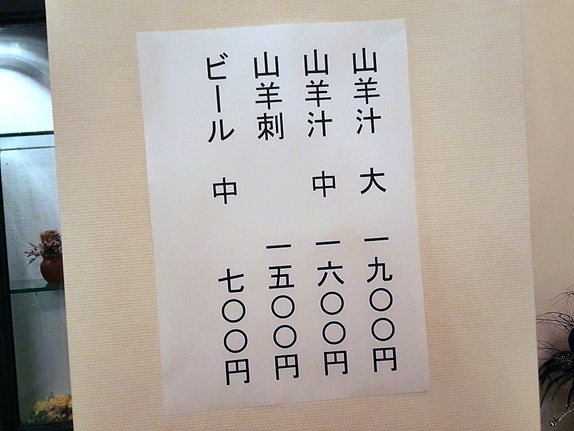 山羊汁 大 一九〇〇円
山羊汁 中 一六〇〇円
山羊刺 一五〇〇円
ビール 中 七〇〇円